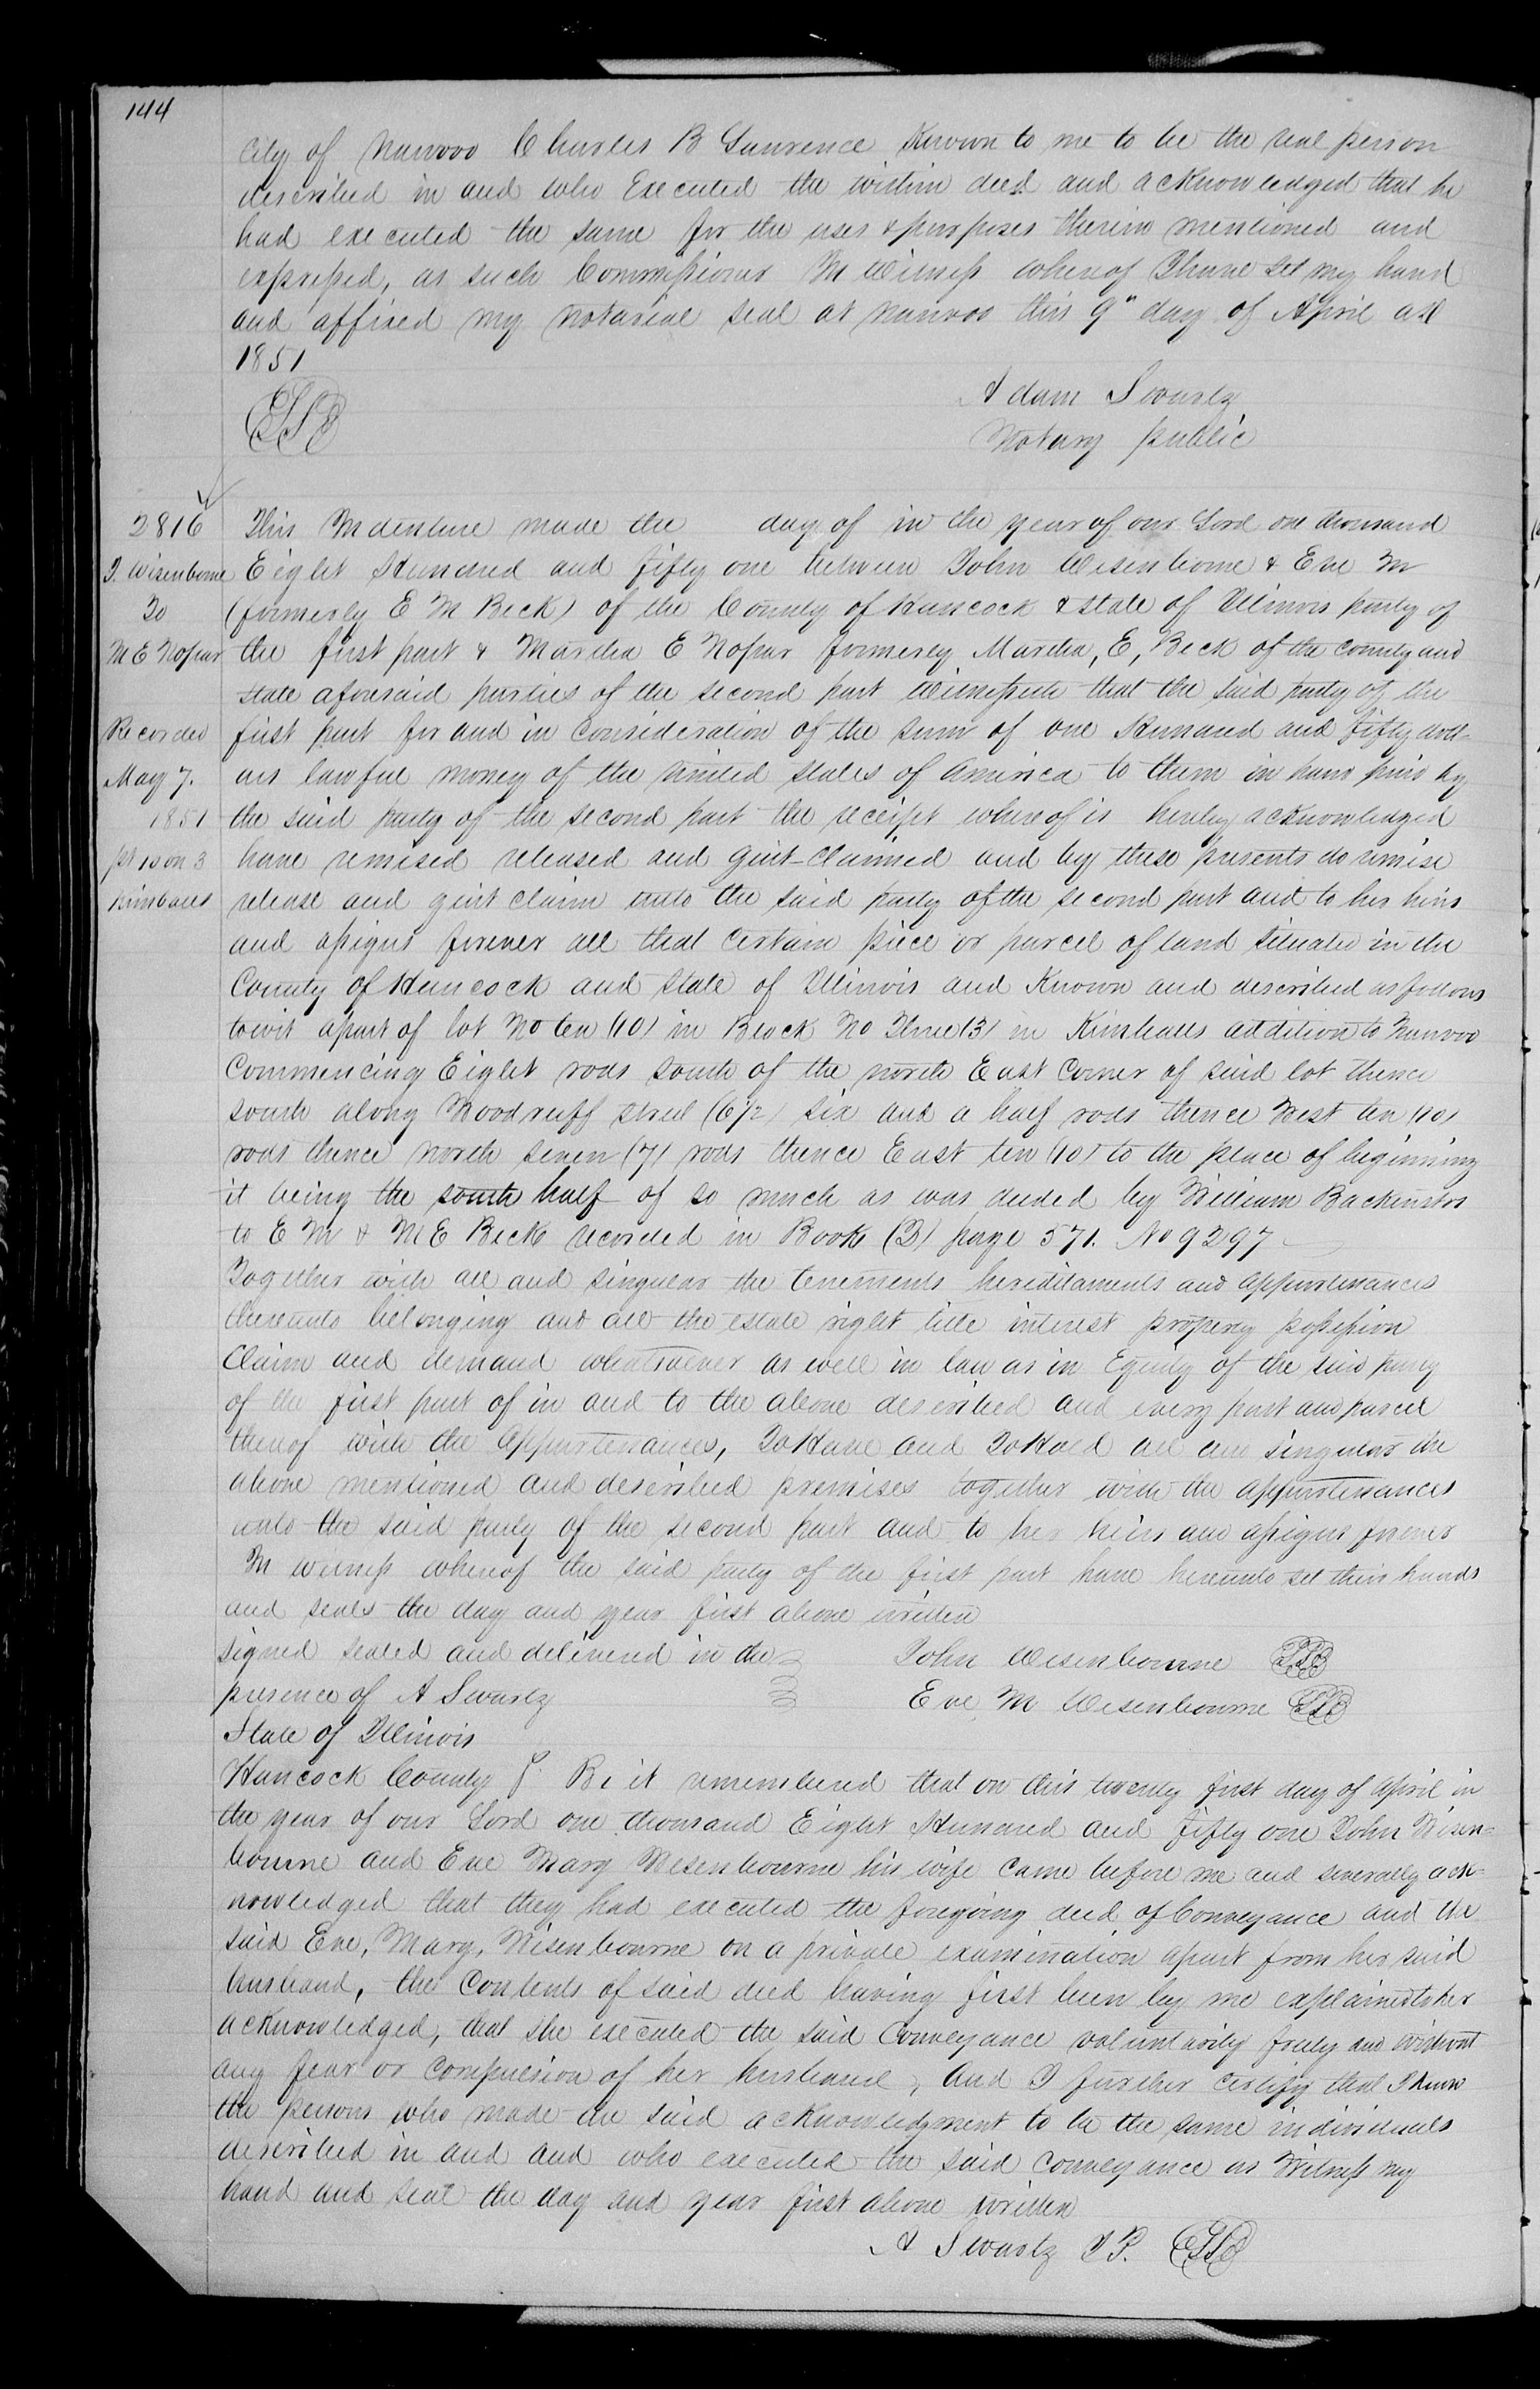 144
City of Nauvoo Charles B Lawrence Known to me to be the real person
described in and who Executed the within deed and acknowledged that he
had executed the same for the uses & purposes therein mentioned and
expressed, as such Commissioner In Witness whereof I have set my hand
and affixed my notarial seal at Nauvoo this 9" day of April AD
1851
Adam Swartz
Notary public
2816
J. Wisenborne
To
M E Nopar
Recorded
May 7.
1851
pt 10 on 3
Kimballs
This Indenture made the day of in the year of our Lord one thousand
Eight Hundred and fifty one between John Wisenborne & Eve M
(formerly E M Beck) of the County of Hancock & state of Illinois party of
the first part & Martha E Nopar formerly Martha, E, Beck of the county and
state aforesaid parties of the second part Witnesseth that the said party of the
first part for and in Consideration of the sum of one Hundred and fifty doll-
ars lawful money of the United States of America to them in hand paid by
the said party of the second part the receipt whereof is hereby acknowledged
have remised released and quit-claimed and by these presents do remise
release and quit claim unto the said party of the second part and to her heirs
and assigns forever all that certain piece or parcel of land situated in the
County of Hancock and State of Illinois and Known and described as follows
towit a part of lot No ten (10) in Block No Three (3) in Kimballs addition to Nauvoo
Commencing Eight rods south of the north East Corner of said lot thence
south along Woodruff street (6 1/2) six and a half rods thence West ten (10)
rods thence north seven (7) rods thence East ten (10) to the place of beginning
it being the south half of so much as was deeded by William Backenstos
to E M & M E Beck recorded in Book (B) page 571. No 9297
Together with all and singular the tenements hereditaments and appurtenances
thereunto belonging and all the estate right title interest property possession
Claim and demand whatsoever as well in law as in Equity of the said party
of the first part of in and to the above described and every part and parcel
thereof with the appurtenances, To Have and To Hold all and singular the
above mentioned and described premises together with the appurtenances
unto the said party of the second part and to her heirs and assigns forever
In witness whereof the said party of the first part have hereunto set their hands
and seals the day and year first above written
signed sealed and delivered in the John Wesenbourne
presence of A Swartz Eve M Wesenbourne
State of Illinois
Hancock County Be it remembered that on this twenty first day of April in
the year of our Lord one thousand Eight Hundred and fifty one John Wisen=
bourne and Eve Mary Wesenbourne his wife came before me and severally ack=
nowledged that they had executed the foregoing deed of Conveyance and the
said Eve, Mary, Wisenbourne on a private examination apart from her said
husband, the Contents of said deed having first been by me explained to her
acknowledged, that she executed the said Conveyance voluntarily freely and without
any fear or compulsion of her husband, and I further certify that I know
the persons who made the said acknowledgment to be the same individuals
described in and and who executed the said conveyance as Witness my
hand and seal the day and year first above written
A Swartz J P.